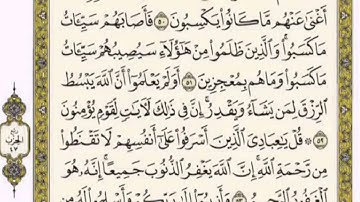 أَغْنَىٰ عَنْهُم مَّا كَانُوا۟ يَكْسِبُونَ ٥٠ فَأَصَابَهُمْ سَيِّـَٔاتُ
مَا كَسَبُوا۟ وَٱلَّذِينَ ظَلَمُوا۟ مِنْ هَٰٓؤُلَآءِ سَيُصِيبُهُمْ سَيِّـَٔاتُ
مَا كَسَبُوا۟ وَمَا هُم بِمُعْجِزِينَ ٥١ أَوَلَمْ يَعْلَمُوٓا۟ أَنَّ ٱللَّهَ يَبْسُطُ
ٱلرِّزْقَ لِمَن يَشَآءُ وَيَقْدِرُ إِنَّ فِى ذَٰلِكَ لَـَٔايَٰتٍ لِّقَوْمٍ يُؤْمِنُونَ
٥٢ قُلْ يَٰعِبَادِىَ ٱلَّذِينَ أَسْرَفُوا۟ عَلَىٰٓ أَنفُسِهِمْ لَا تَقْنَطُوا۟
مِن رَّحْمَةِ ٱللَّهِ إِنَّ ٱللَّهَ يَغْفِرُ ٱلذُّنُوبَ جَمِيعًا إِنَّهُۥ هُوَ
ٱلْغَفُورُ ٱلرَّحِيمُ ٥٣ وَأَنِيبُوٓا۟ إِلَىٰ رَبِّكُمْ وَأَسْلِمُوا۟ لَهُۥ مِن
الحزب
٤٧